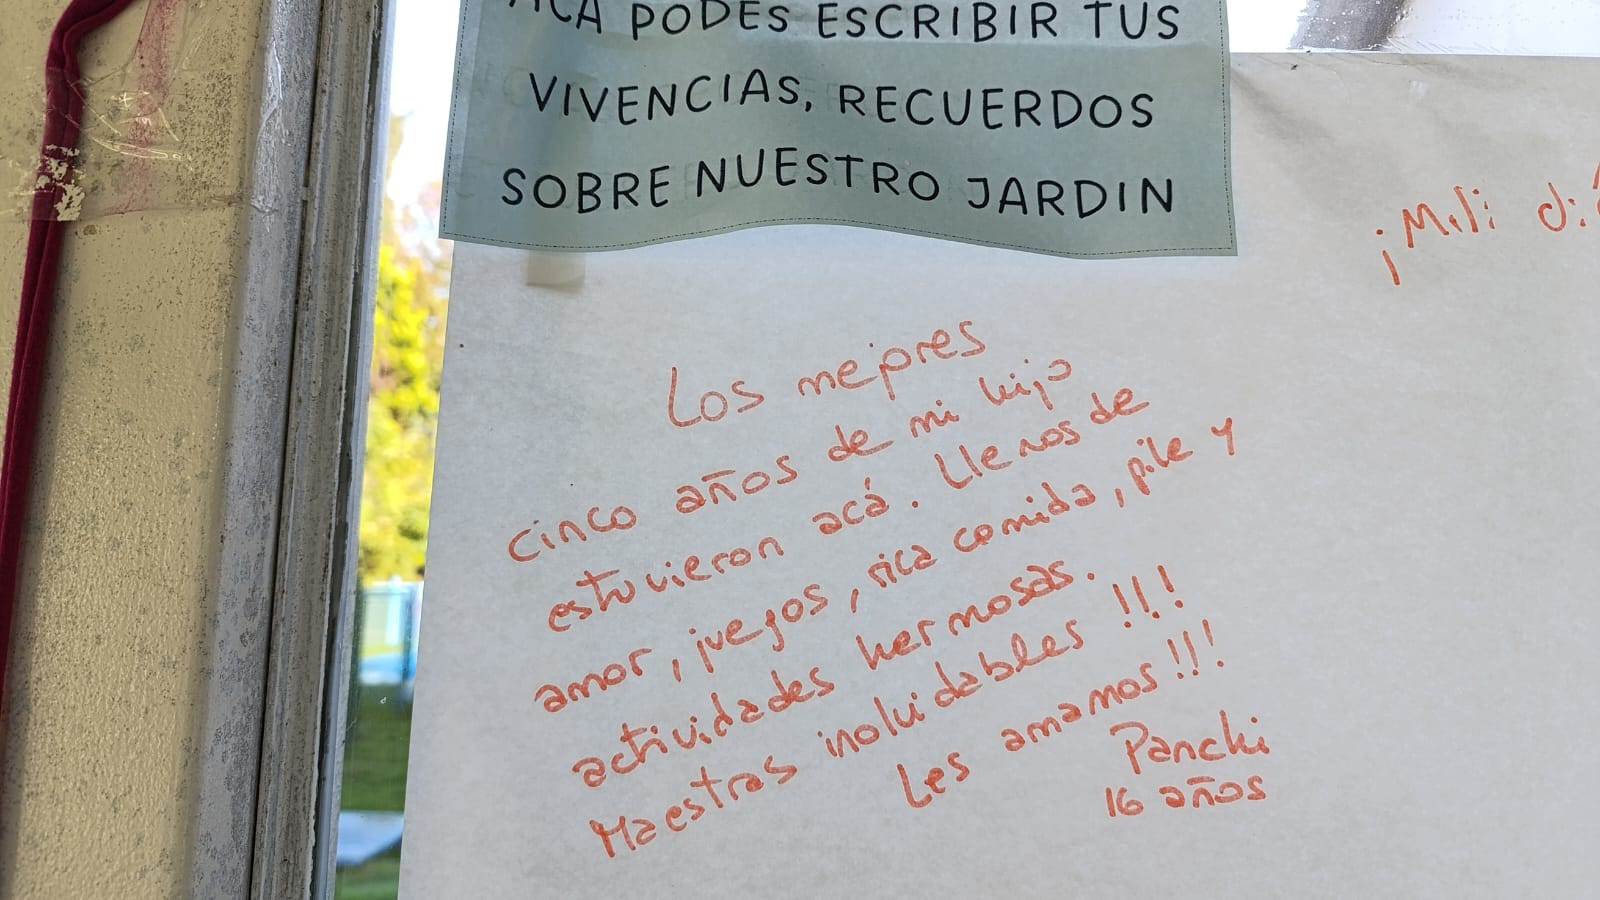 ACA PODES ESCRIBIR TUS
VIVENCIAS, RECUERDOS
SOBRE NUESTRO JARDIN
¡Mili
Los mejores
cinco años de mi hijo
estuvieron acá. Llenos de
amor, juegos, rica comida, pile y
actividades hermosas.
Maestras inolvidables !!!
Les amamos!!!
Panchi
16 años